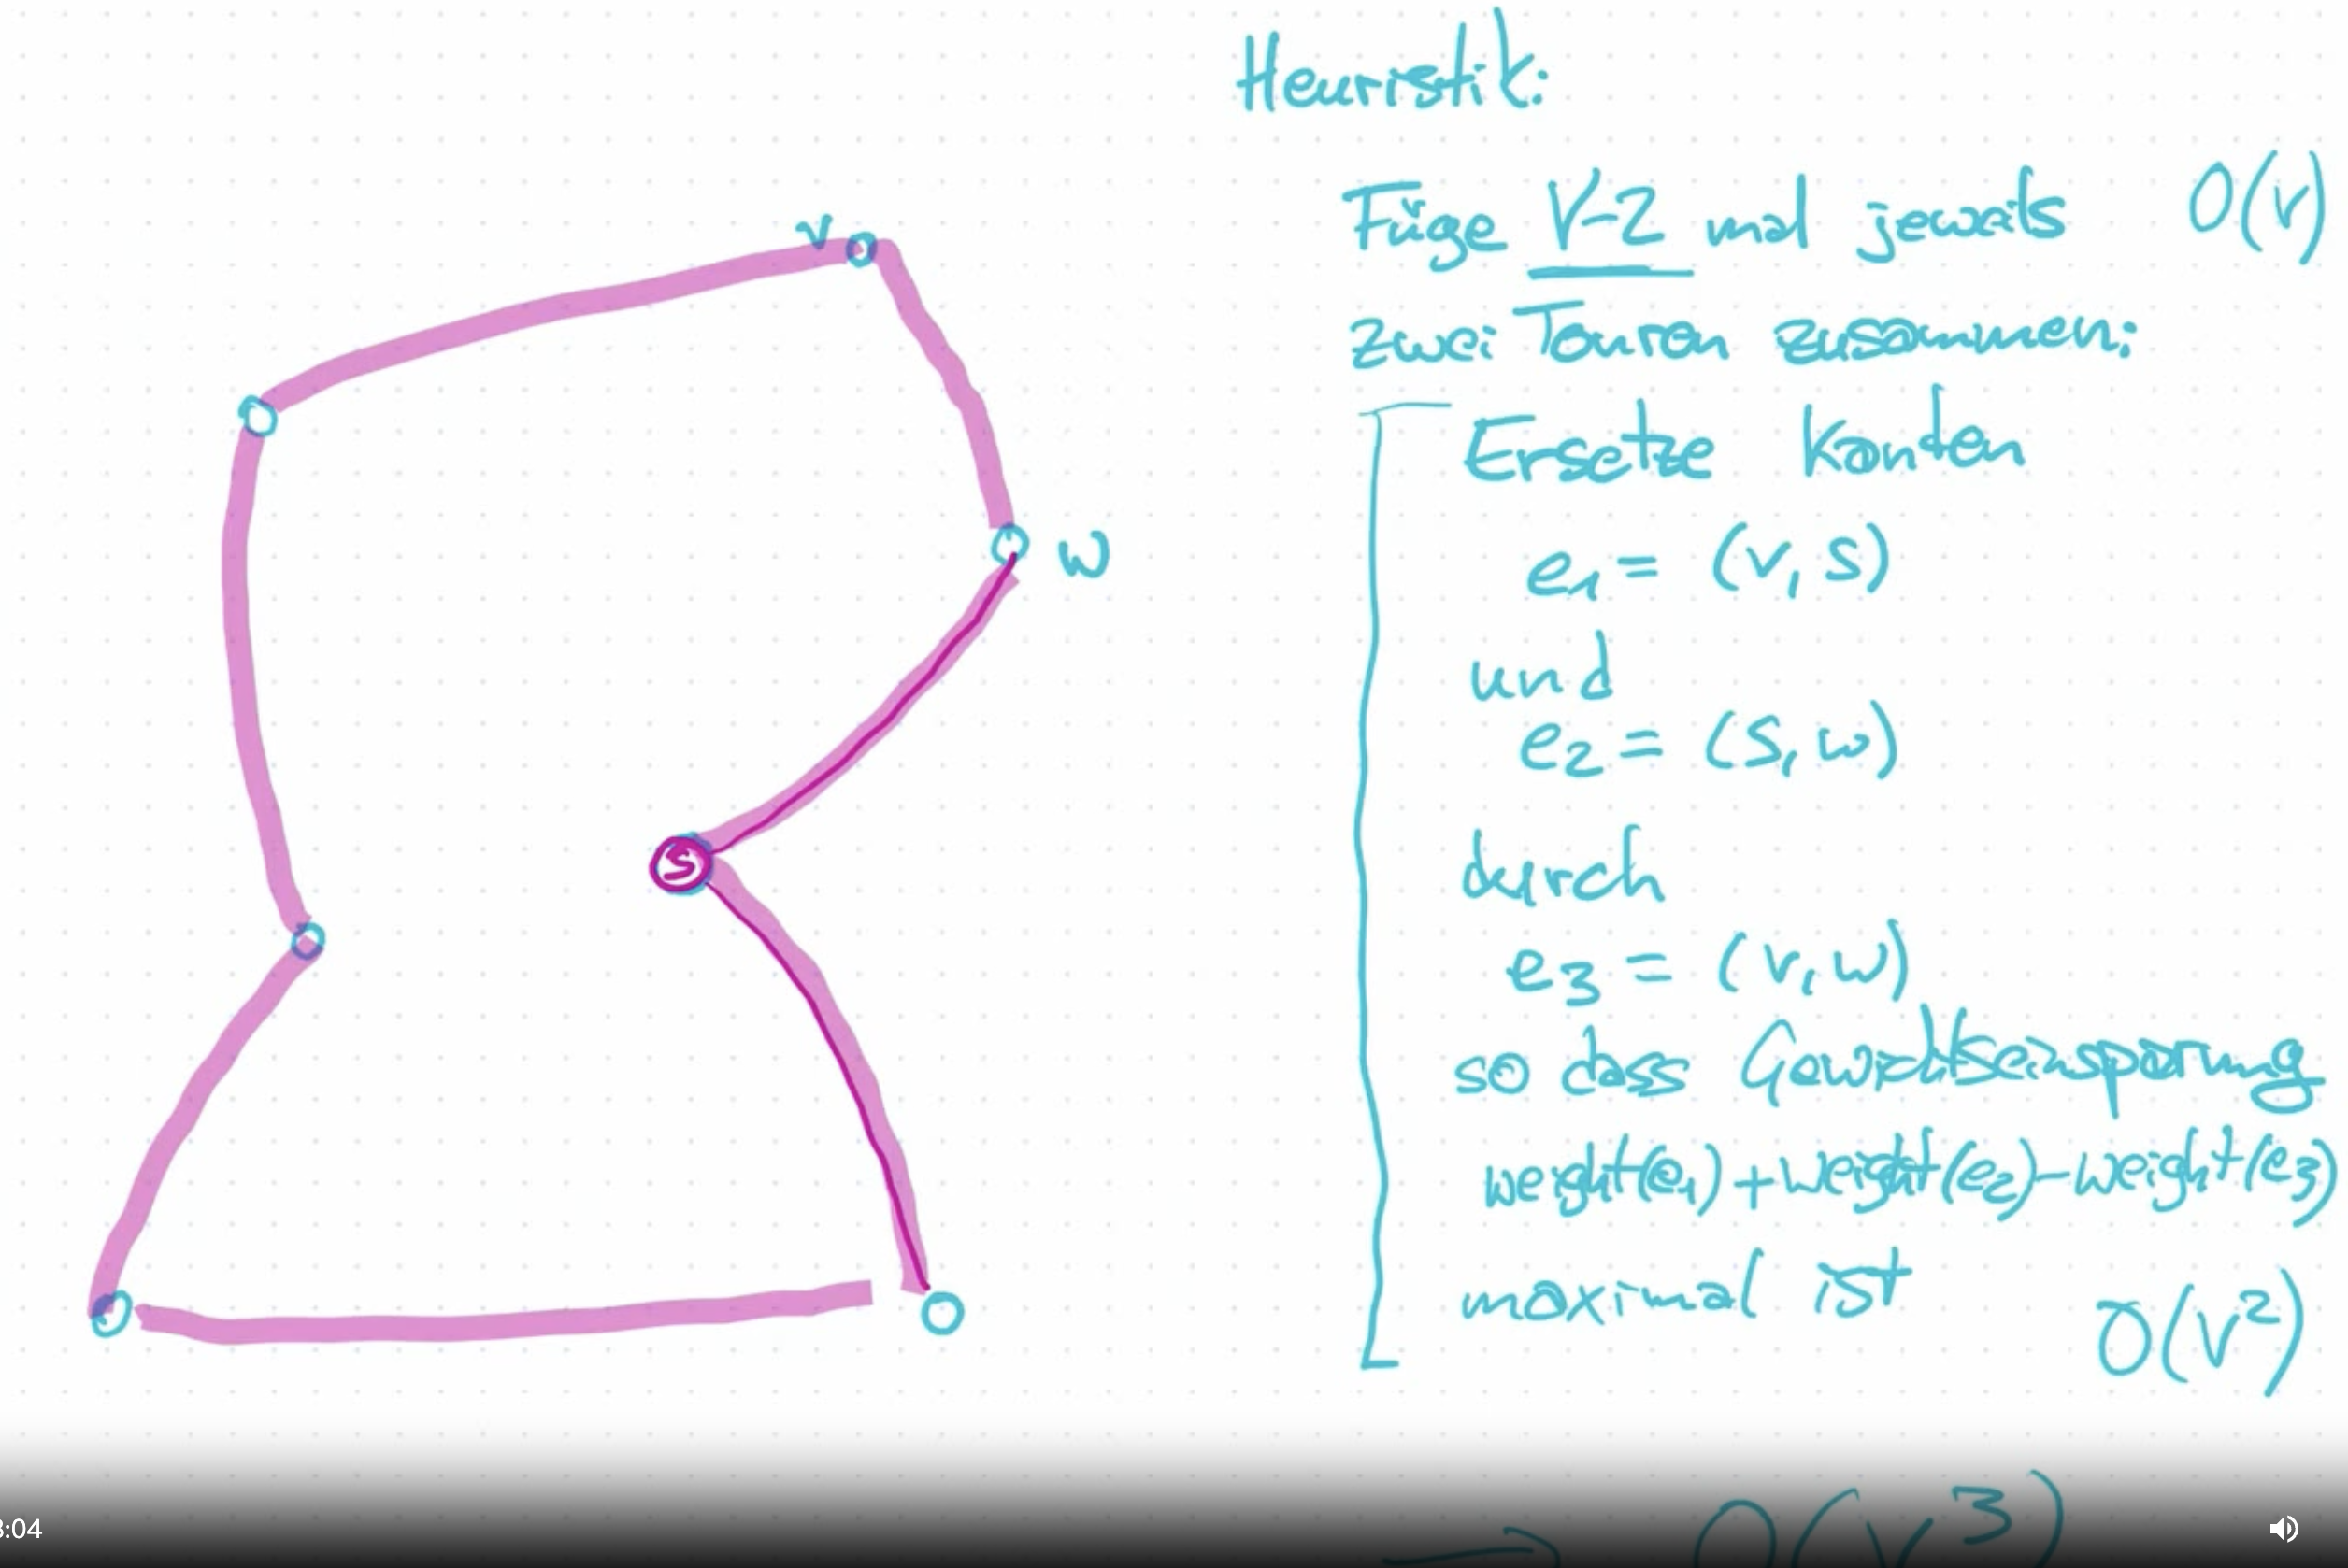 Heuristik:
Füge V-2 mal jeweils O(V)
zwei Touren zusammen:
Ersetze Kanten
e1 = (v, s)
und
e2 = (s, w)
durch
e3 = (v, w)
so dass Gewichtseinsparung
weight(e1) + weight(e2) - weight(e3)
maximal ist
O(V²)
v
w
S
→ O(V³)
3:04